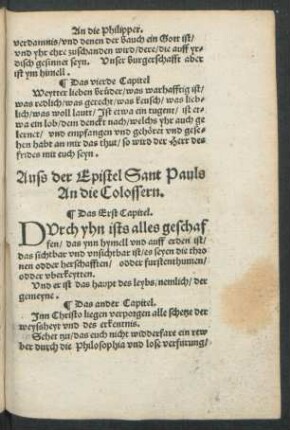 An die Philipper.
verdamnis/vnd denen der bauch ein Gott ist/
vnd yhr ehre zuschanden wird/dere/die auff yr-
disch gesinnet seyn. Vnser burgerschafft aber
ist ym himell.
¶ Das vierde Capitel
Weytter lieben brüder/was warhafftig ist/
was redlich/was gerecht/was keusch/was lieb-
lich/was woll lautt/Ist etwa ein tugent/ ist et-
wa ein lob/dem denckt nach/welchs yhr auch ge
lernet/ vnd empfangen vnd gehöret vnd gese-
hen habt an mir das thut/so wird der Herr des
frides mit euch seyn.
Auss der Epistel Sant Pauls
An die Colossern.
¶ Das Erst Capitel.
DVrch yhn ists alles geschaf
fen/ das ynn hymell vnd auff erden ist/
das sichtbar vnd vnsichtbar ist/es seyen die thro
nen odder herschafften/ odder furstenthumen/
odder oberkeytten.
Vnd er ist das haupt des leybs/nemlich/der
gemeyne.
¶ Das ander Capitel.
Inn Christo liegen verporgen alle schetze der
weyssheyt vnd des erkentnis.
Sehet zu/das euch nicht widderfare ein rew
ber durch die Philosophia vnd lose verfurung/